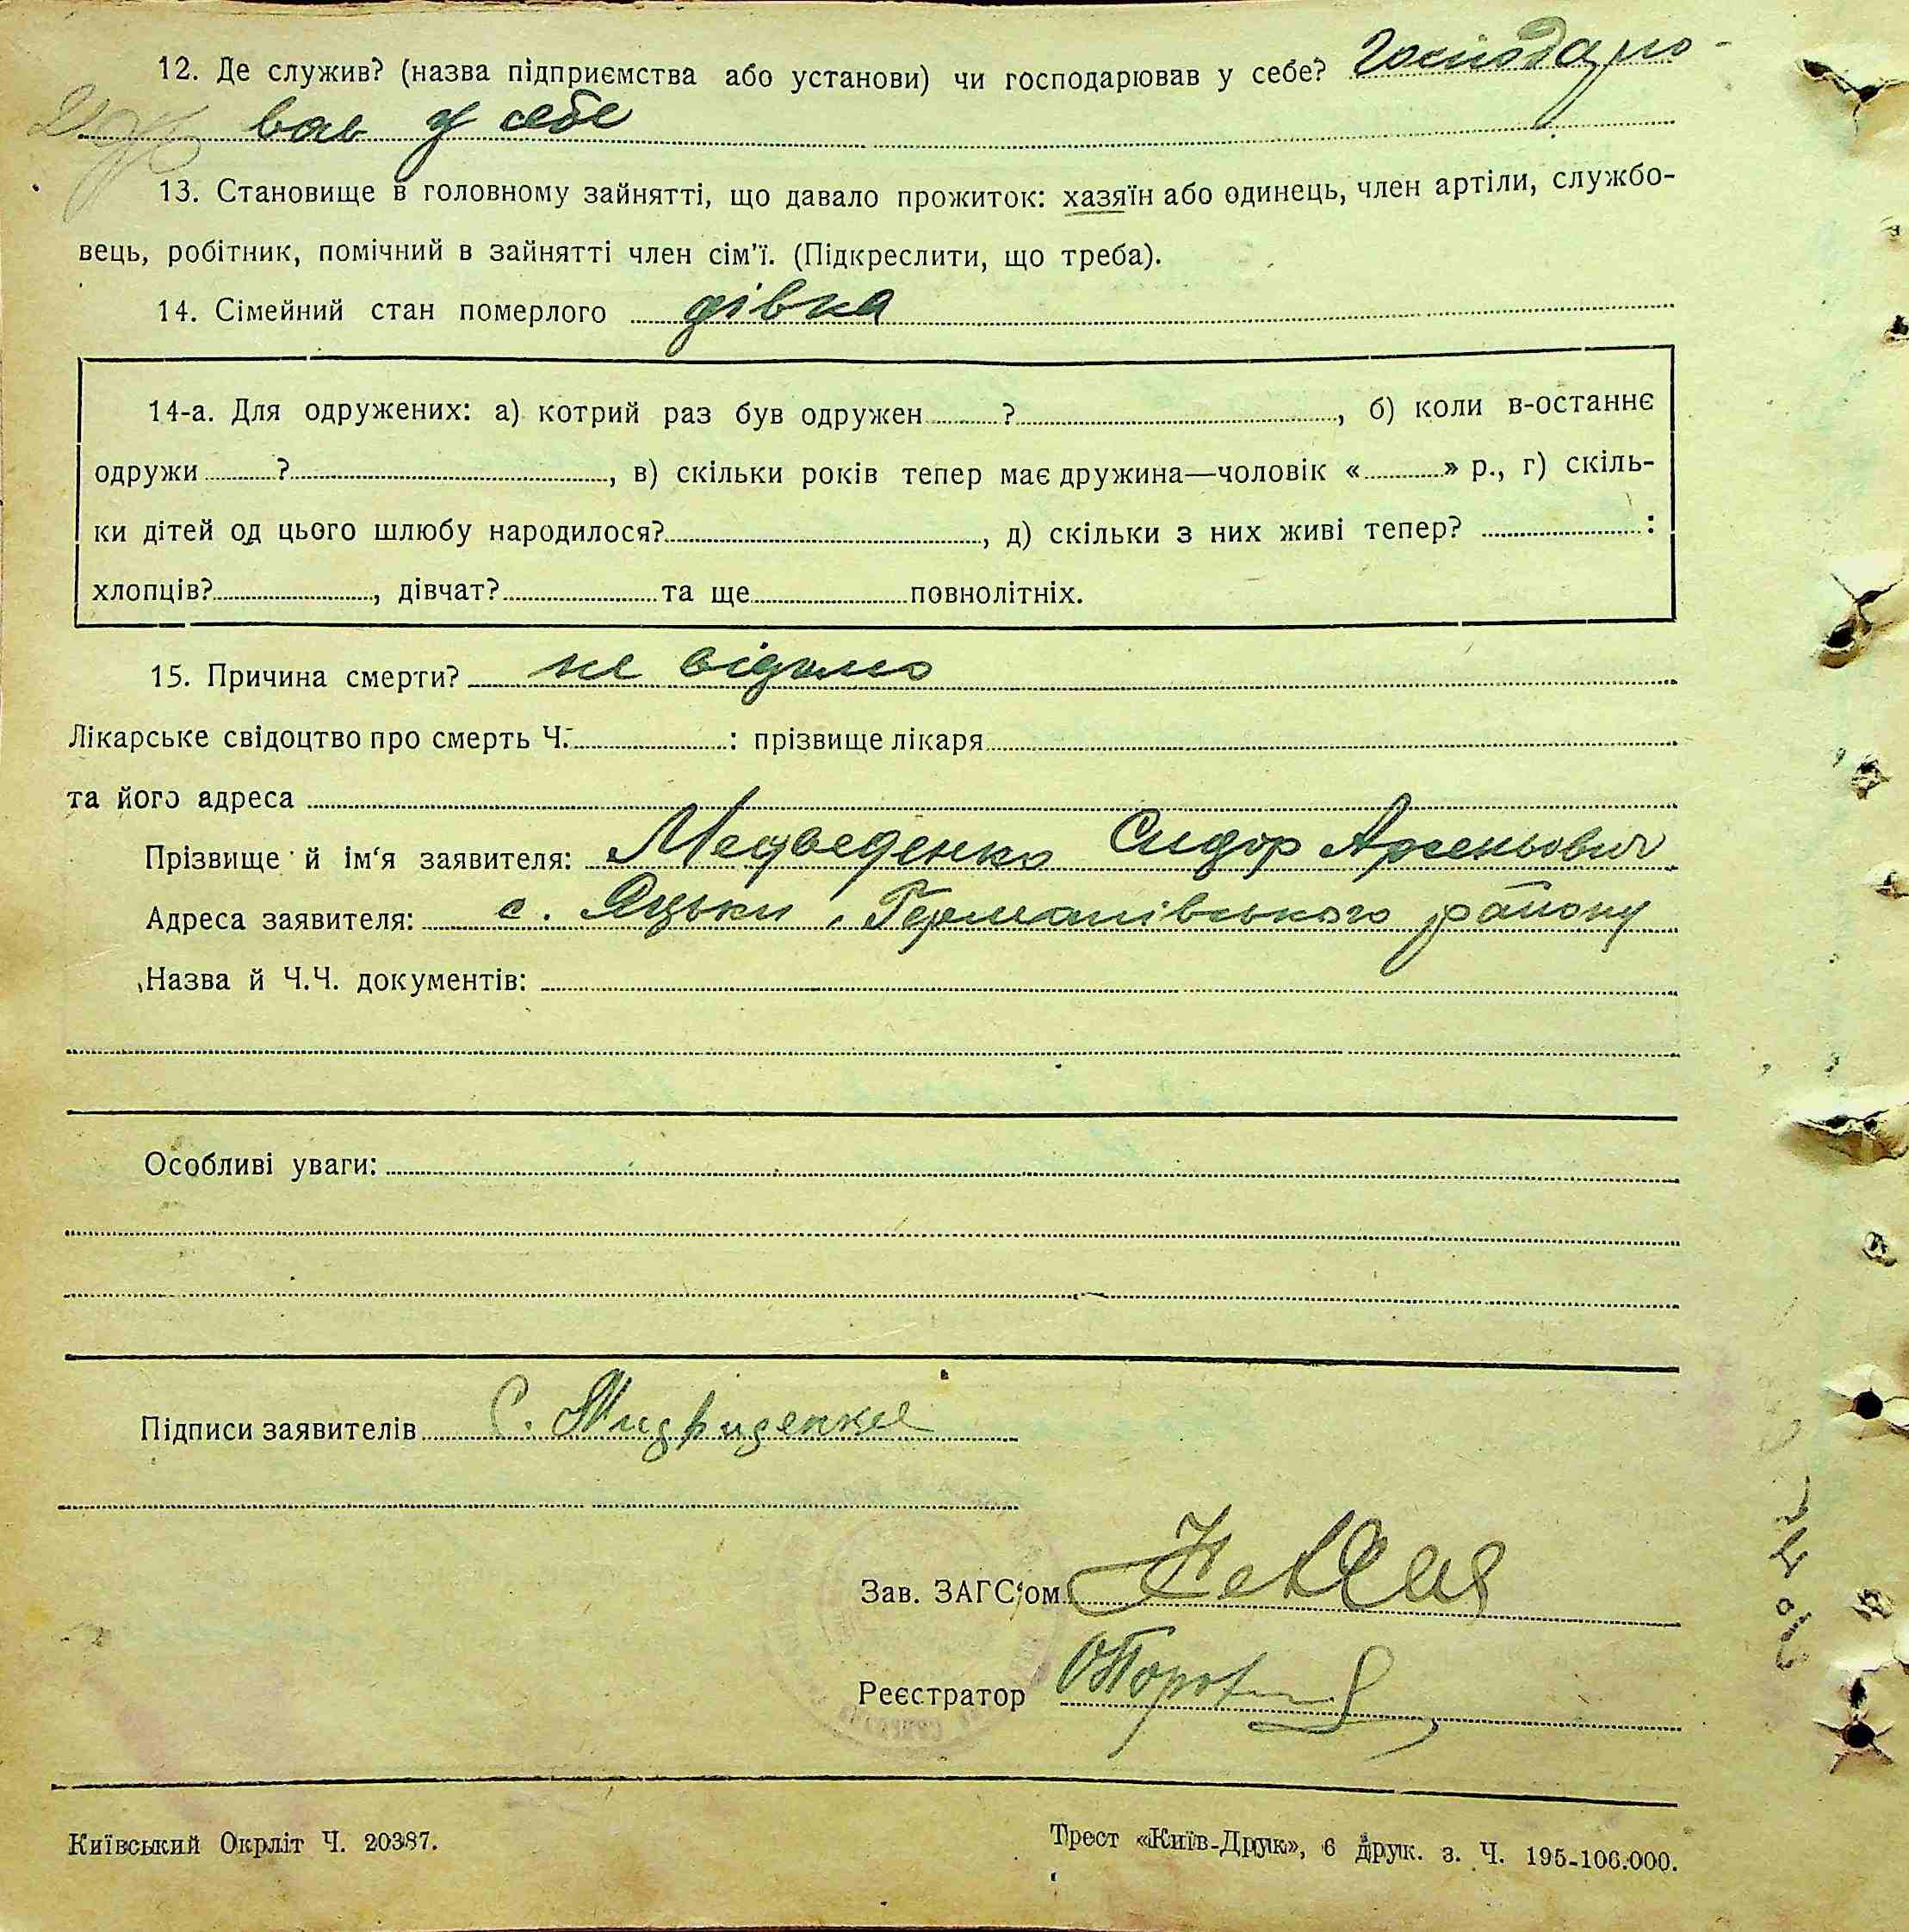 12. Де служив? (назва підприємства або установи) чи господарював у себе? Господарю-
вав у себе
13. Становище в головному зайнятті, що давало прожиток: хазяїн або одинець, член артіли, службо-
вець, робітник, помічний в зайнятті член сім'ї. (Підкреслити, що треба).
14. Сімейний стан померлого дівка
14-а. Для одружених: а) котрий раз був одружен ? , б) коли в-останнє
одружи ? , в) скільки років тепер має дружина—чоловік « » р., г) скіль-
ки дітей од цього шлюбу народилося? , д) скільки з них живі тепер? :
хлопців? , дівчат? та ще повнолітніх.
15. Причина смерти? не відомо
Лікарське свідоцтво про смерть Ч. : прізвище лікаря
та його адреса
Прізвище й ім'я заявителя: Медведенко Сидор Арсеньович
Адреса заявителя: с. Яцьки, Германівського району
Назва й Ч.Ч. документів:
Особливі уваги:
Підписи заявителів С.
Зав. ЗАГС'ом
Реєстратор
Київський Окрліт Ч. 20387.
Трест «Київ-Друк», 6 друк. з. Ч. 195-106.000.